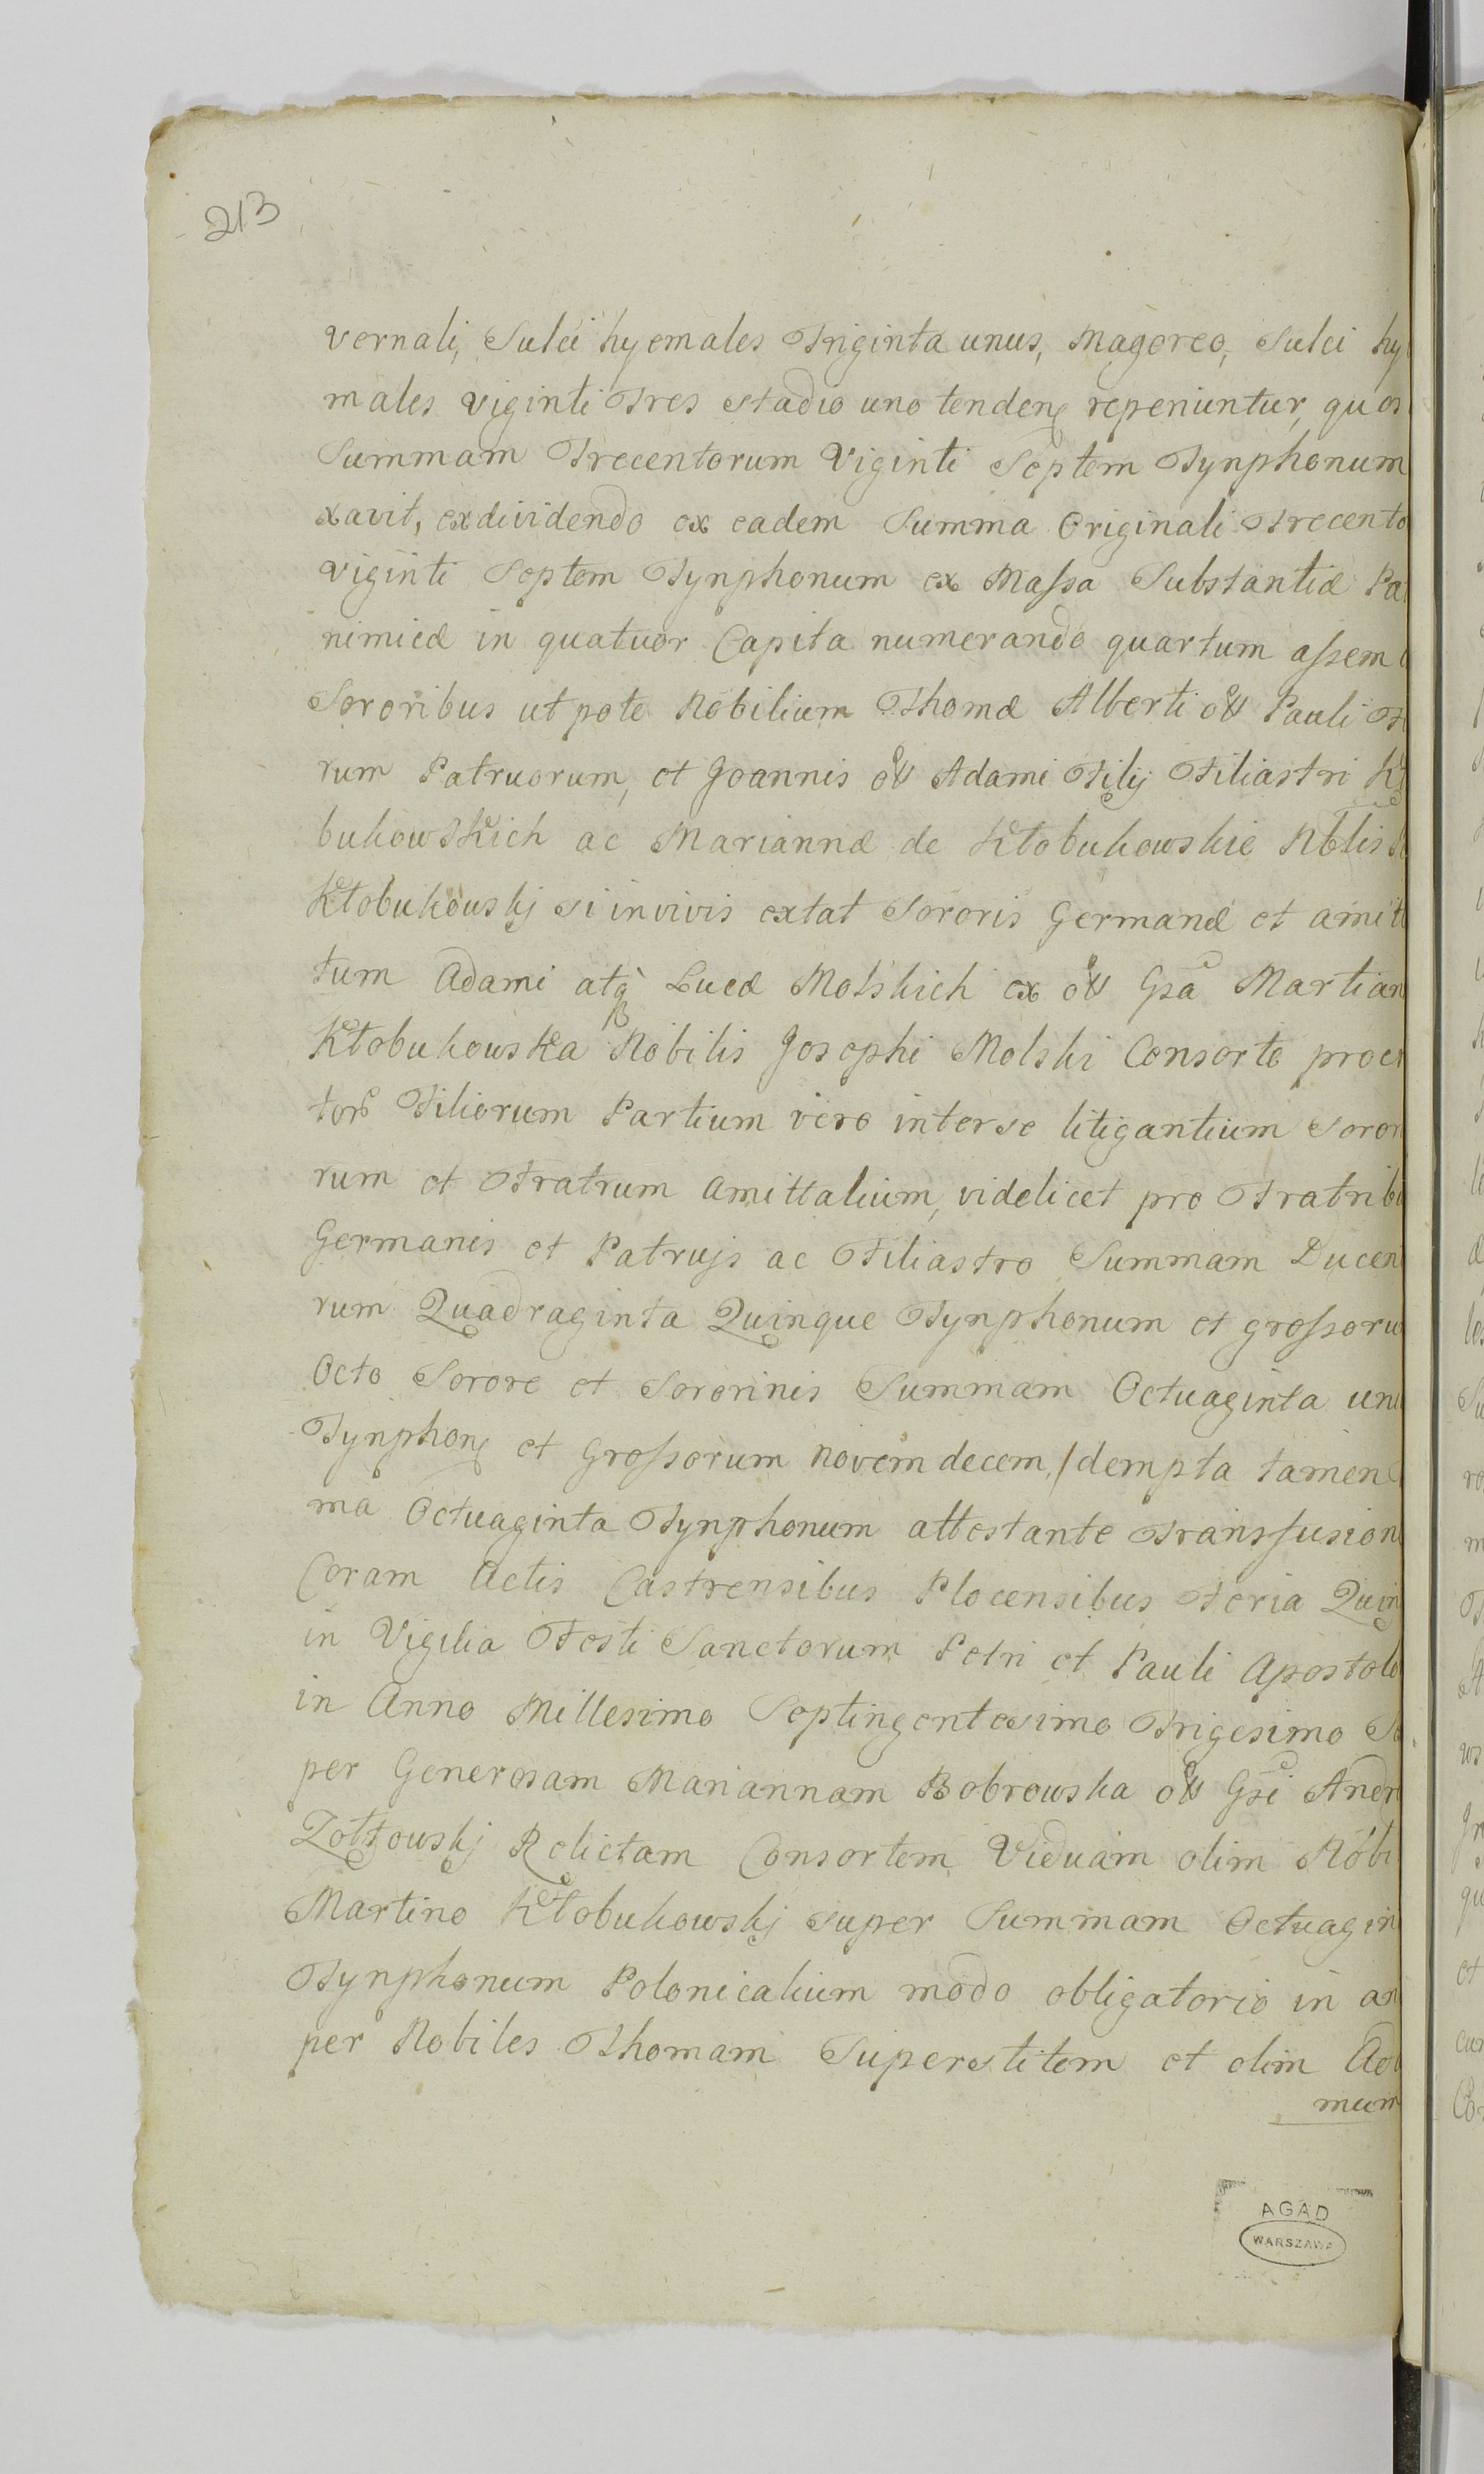 213
vernali, Sulci hyemales Triginta unus, Magoreo, Sulci hy
males viginti Tres stadio uno tenden repeniuntur, quos
Summam Trecentorum Viginti Septem Tynphonum
xavit, exdividendo ex eadem Summa Originali Trecento
viginti Septem Tynphonum ex Massa Substantiæ Pa
nimicæ in quatuor Capita numerando quartum assem
Sororibus utpote Nobilium Thomæ Alberti oll Pauli
rum Patruorum, et Joannis oll Adami Filij Filiastri Kł
bukowskich ac Mariannæ de Kłobukowskie Nblis
Kłobukouskj si in vivis extat Sororis Germanæ et amit
tum Adami atq Lucæ Molskich ex olł Gsa Martian
Kłobukouska Nobilis Josephi Molski Consorte procr
tor Filiorum Partium vero inter se litigantium Soror
rum et Fratrum Amittalium, videlicet pro Fratrib
Germanis et Patrujs ac Filiastro Summam Ducen
rum Quadraginta Quinque Tynphonum et grossoru
Octo Sorore et Sororinis Summam Octuaginta un
Tynphon et Grossorum Novem decem, /dempta tamen
ma Octuaginta Tynphonum attestante Transfusion
Coram Actis Castrensibus Plocensibus Feria Quin
in Vigilia Festi Sanctorum Petri et Pauli Apostolo
in Anno Millesimo Septingentesimo Trigesimo Se
per Generosam Mariannam Bobrowska olł Gsi Andr
Zołtouskj Relictam Consortem Viduam olim Nobi
Martino Kłobukowskj super Summam Octuagin
Tynphonum Polonicalium modo obligatorio in an
per Nobiles Thomam Superstitem et olim Ad
mum
AGAD
WARSZAWA